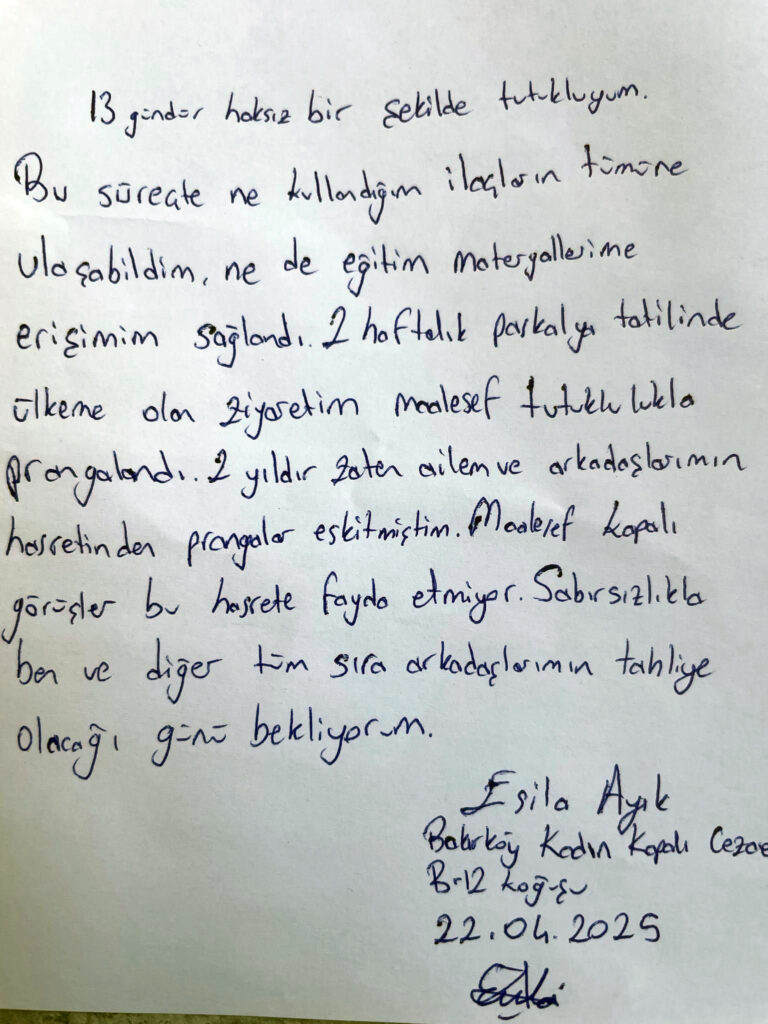 13 gündür haksız bir şekilde tutukluyum.
Bu süreçte ne kullandığım ilaçların tümüne
ulaşabildim, ne de eğitim materyallerime
erişimim sağlandı. 2 haftalık paskalya tatilinde
ülkeme olan ziyaretim maalesef tutuklulukla
prangalandı. 2 yıldır zaten ailem ve arkadaşlarımın
hasretinden prangalar eskitmiştim. Maalesef kapalı
görüşler bu hasrete fayda etmiyor. Sabırsızlıkla
ben ve diğer tüm sıra arkadaşlarımın tahliye
olacağı günü bekliyorum.
Esila Ayık
Bakırköy Kadın Kapalı Cezae
B-12 koğuşu
22.04.2025